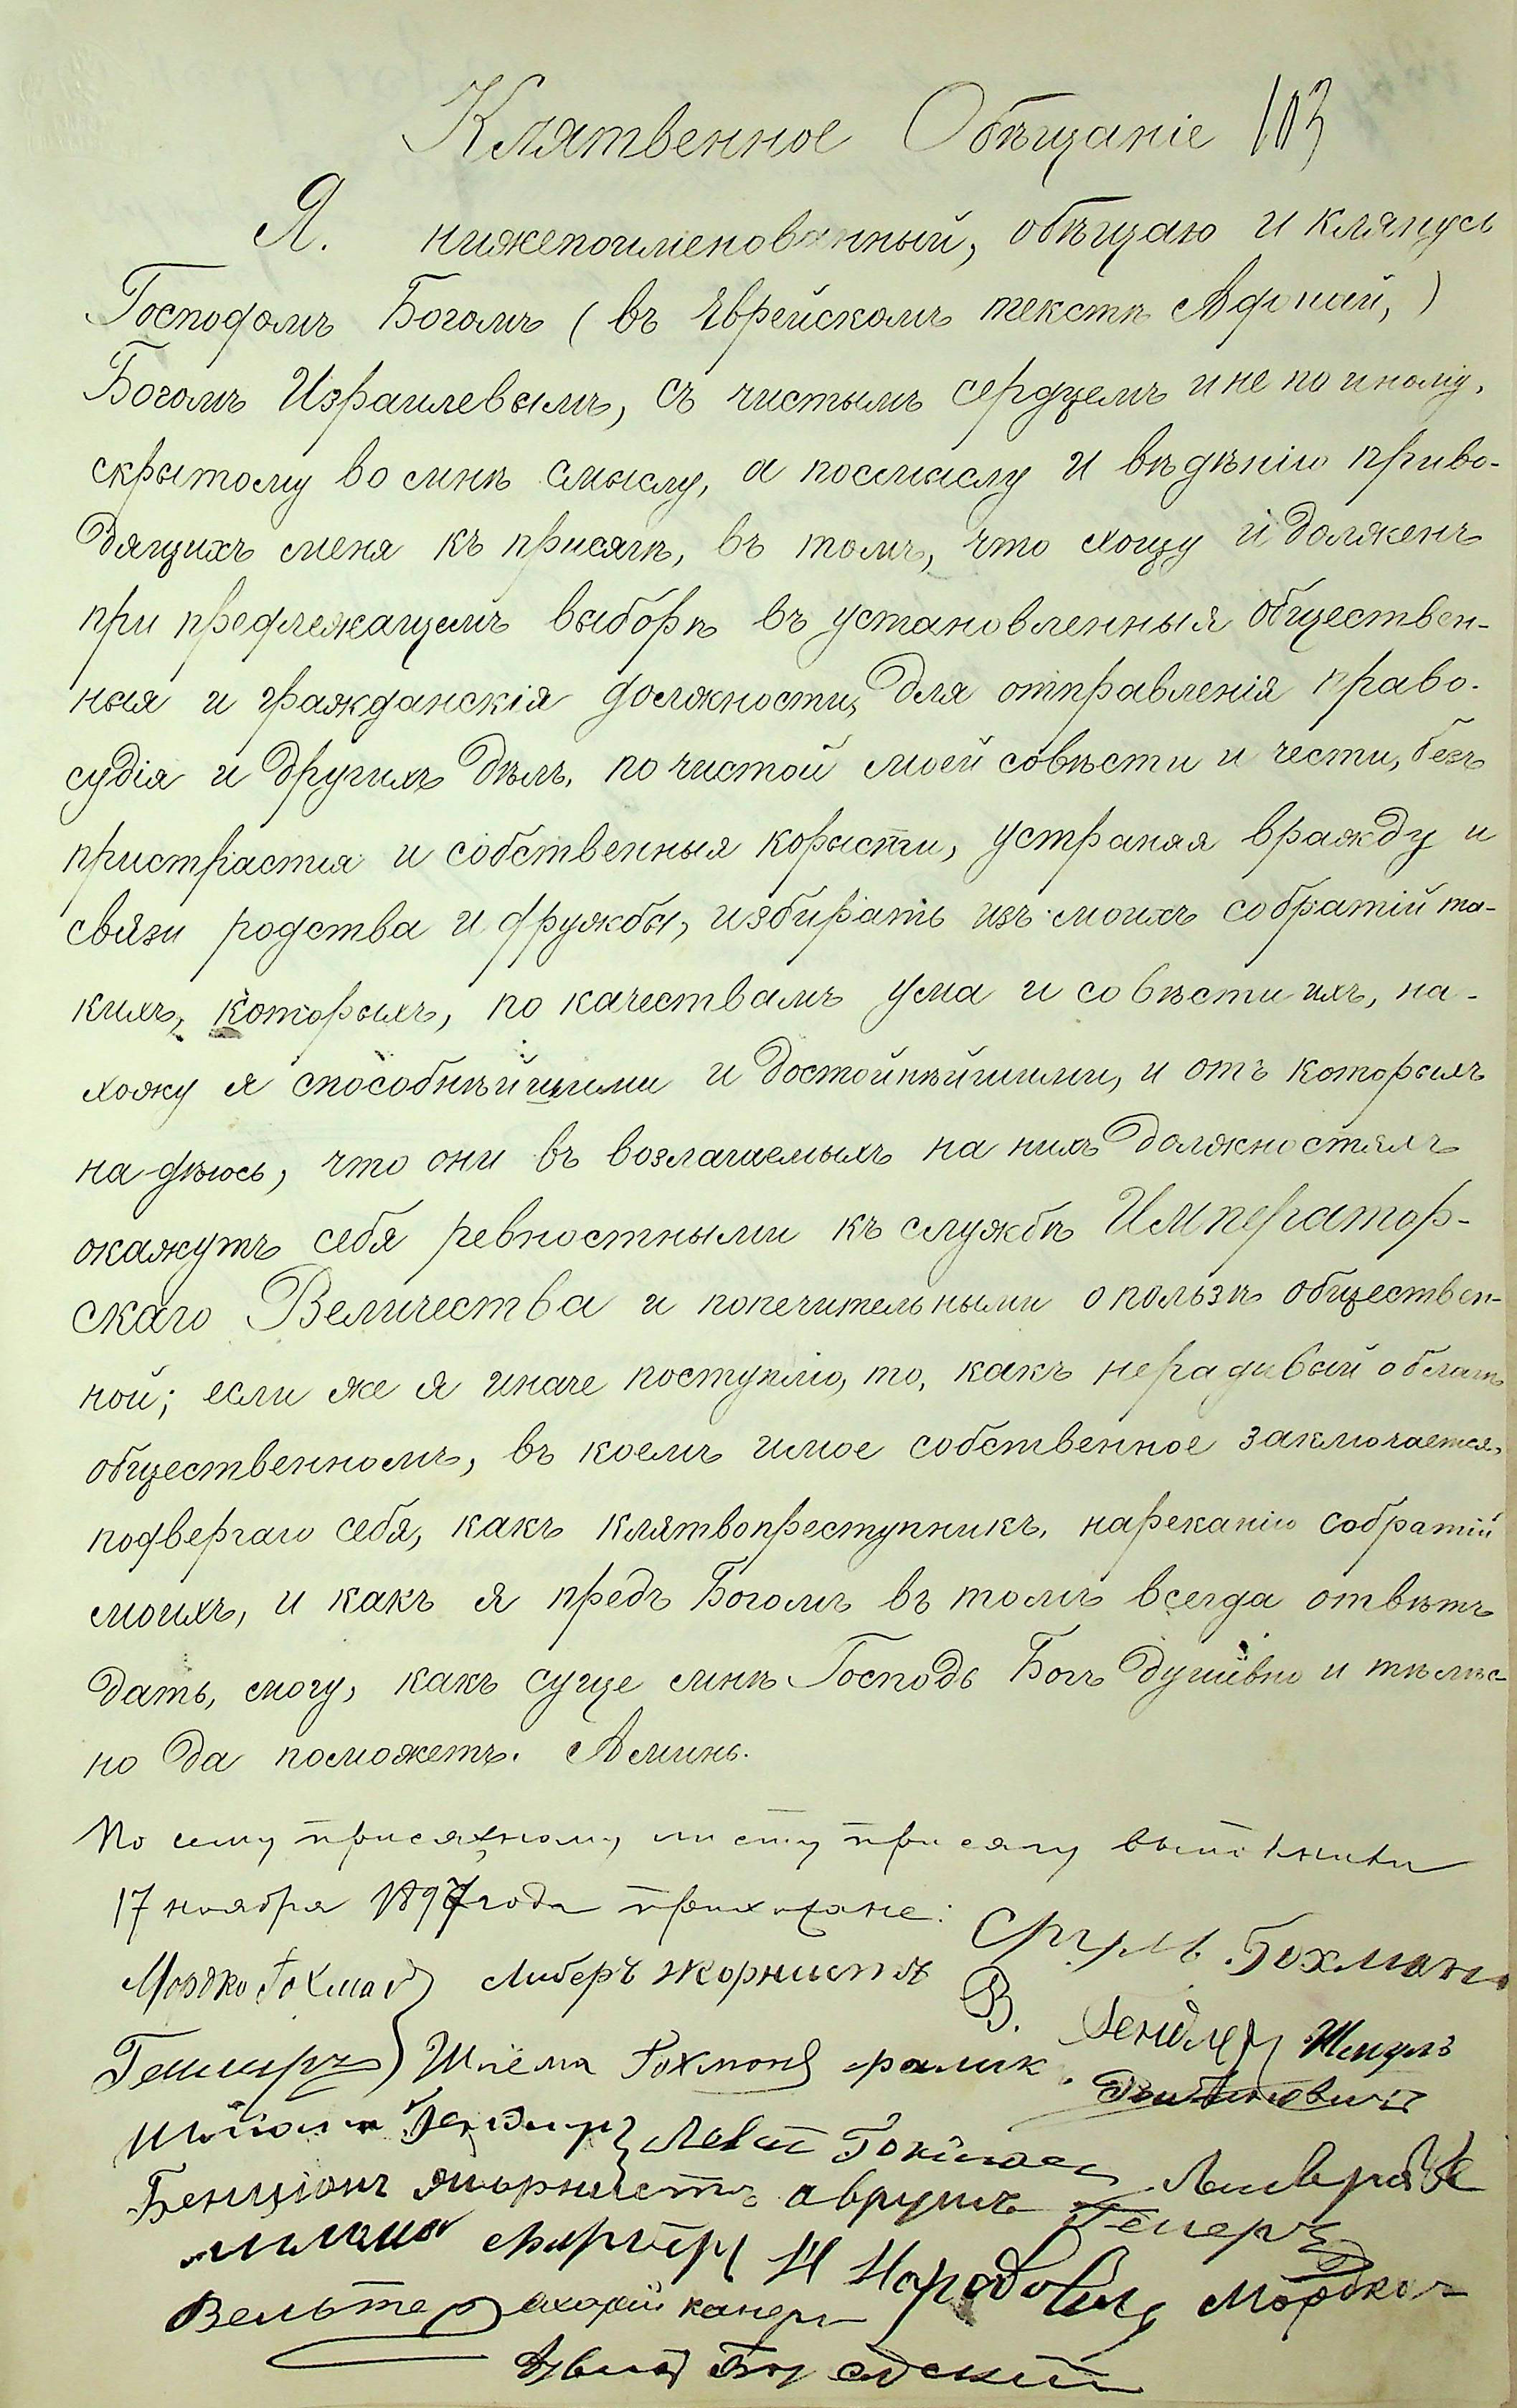 Клятвенное Обѣщаніе 103
Я. нижепоименованный, обѣщаю и клянусь
Господомъ Богомъ (въ Еврейскомъ текстѣ Адонай,)
Богомъ Израилевымъ, съ чистымъ сердцемъ и не по иному,
скрытому во мнѣ смыслу, а посмыслу и вѣдѣнію приво-
дящихъ меня къ присягѣ, въ томъ, что хощу и долженъ
при предлежащемъ выборѣ въ установленныя обществен-
ныя и гражданскія должности, для отправленія право-
судія и другихъ дѣлъ, по чистой моей совѣсти и чести, безъ
пристрастія и собственныя корысти, устраняя вражду и
связи родства и дружбы, избирать изъ моихъ собратій та-
кихъ, которыхъ, по качествамъ ума и совѣсти ихъ, на-
хожу я способнѣйшими и достойнѣйшими, и отъ которыхъ
надѣюсь, что они въ возлагаемыхъ на нихъ должностяхъ
окажутъ себя ревностными къ службѣ Император-
скаго Величества и попечительными о пользѣ обществен-
ной; если же я иначе поступлю, то, какъ нерадивый о благѣ
общественномъ, въ коемъ и мое собственное заключается,
подвергаю себя, какъ клятвопреступникъ, нареканію собратій
моихъ, и какъ я предъ Богомъ въ томъ всегда отвѣтъ
дать, смогу, какъ суще мнѣ Господь Богъ душевно и тѣлес-
но да поможетъ. Аминь.
По сему присяжному листу присягу выполнили
17 ноября 1897 года прихожане:
Сруль Гохманъ
Мордко Гохман Либеръ Жорнистъ
В. Гендлер
Шлема Гохманъ
Бенціонъ аврумъ
Мордко
Вельтер